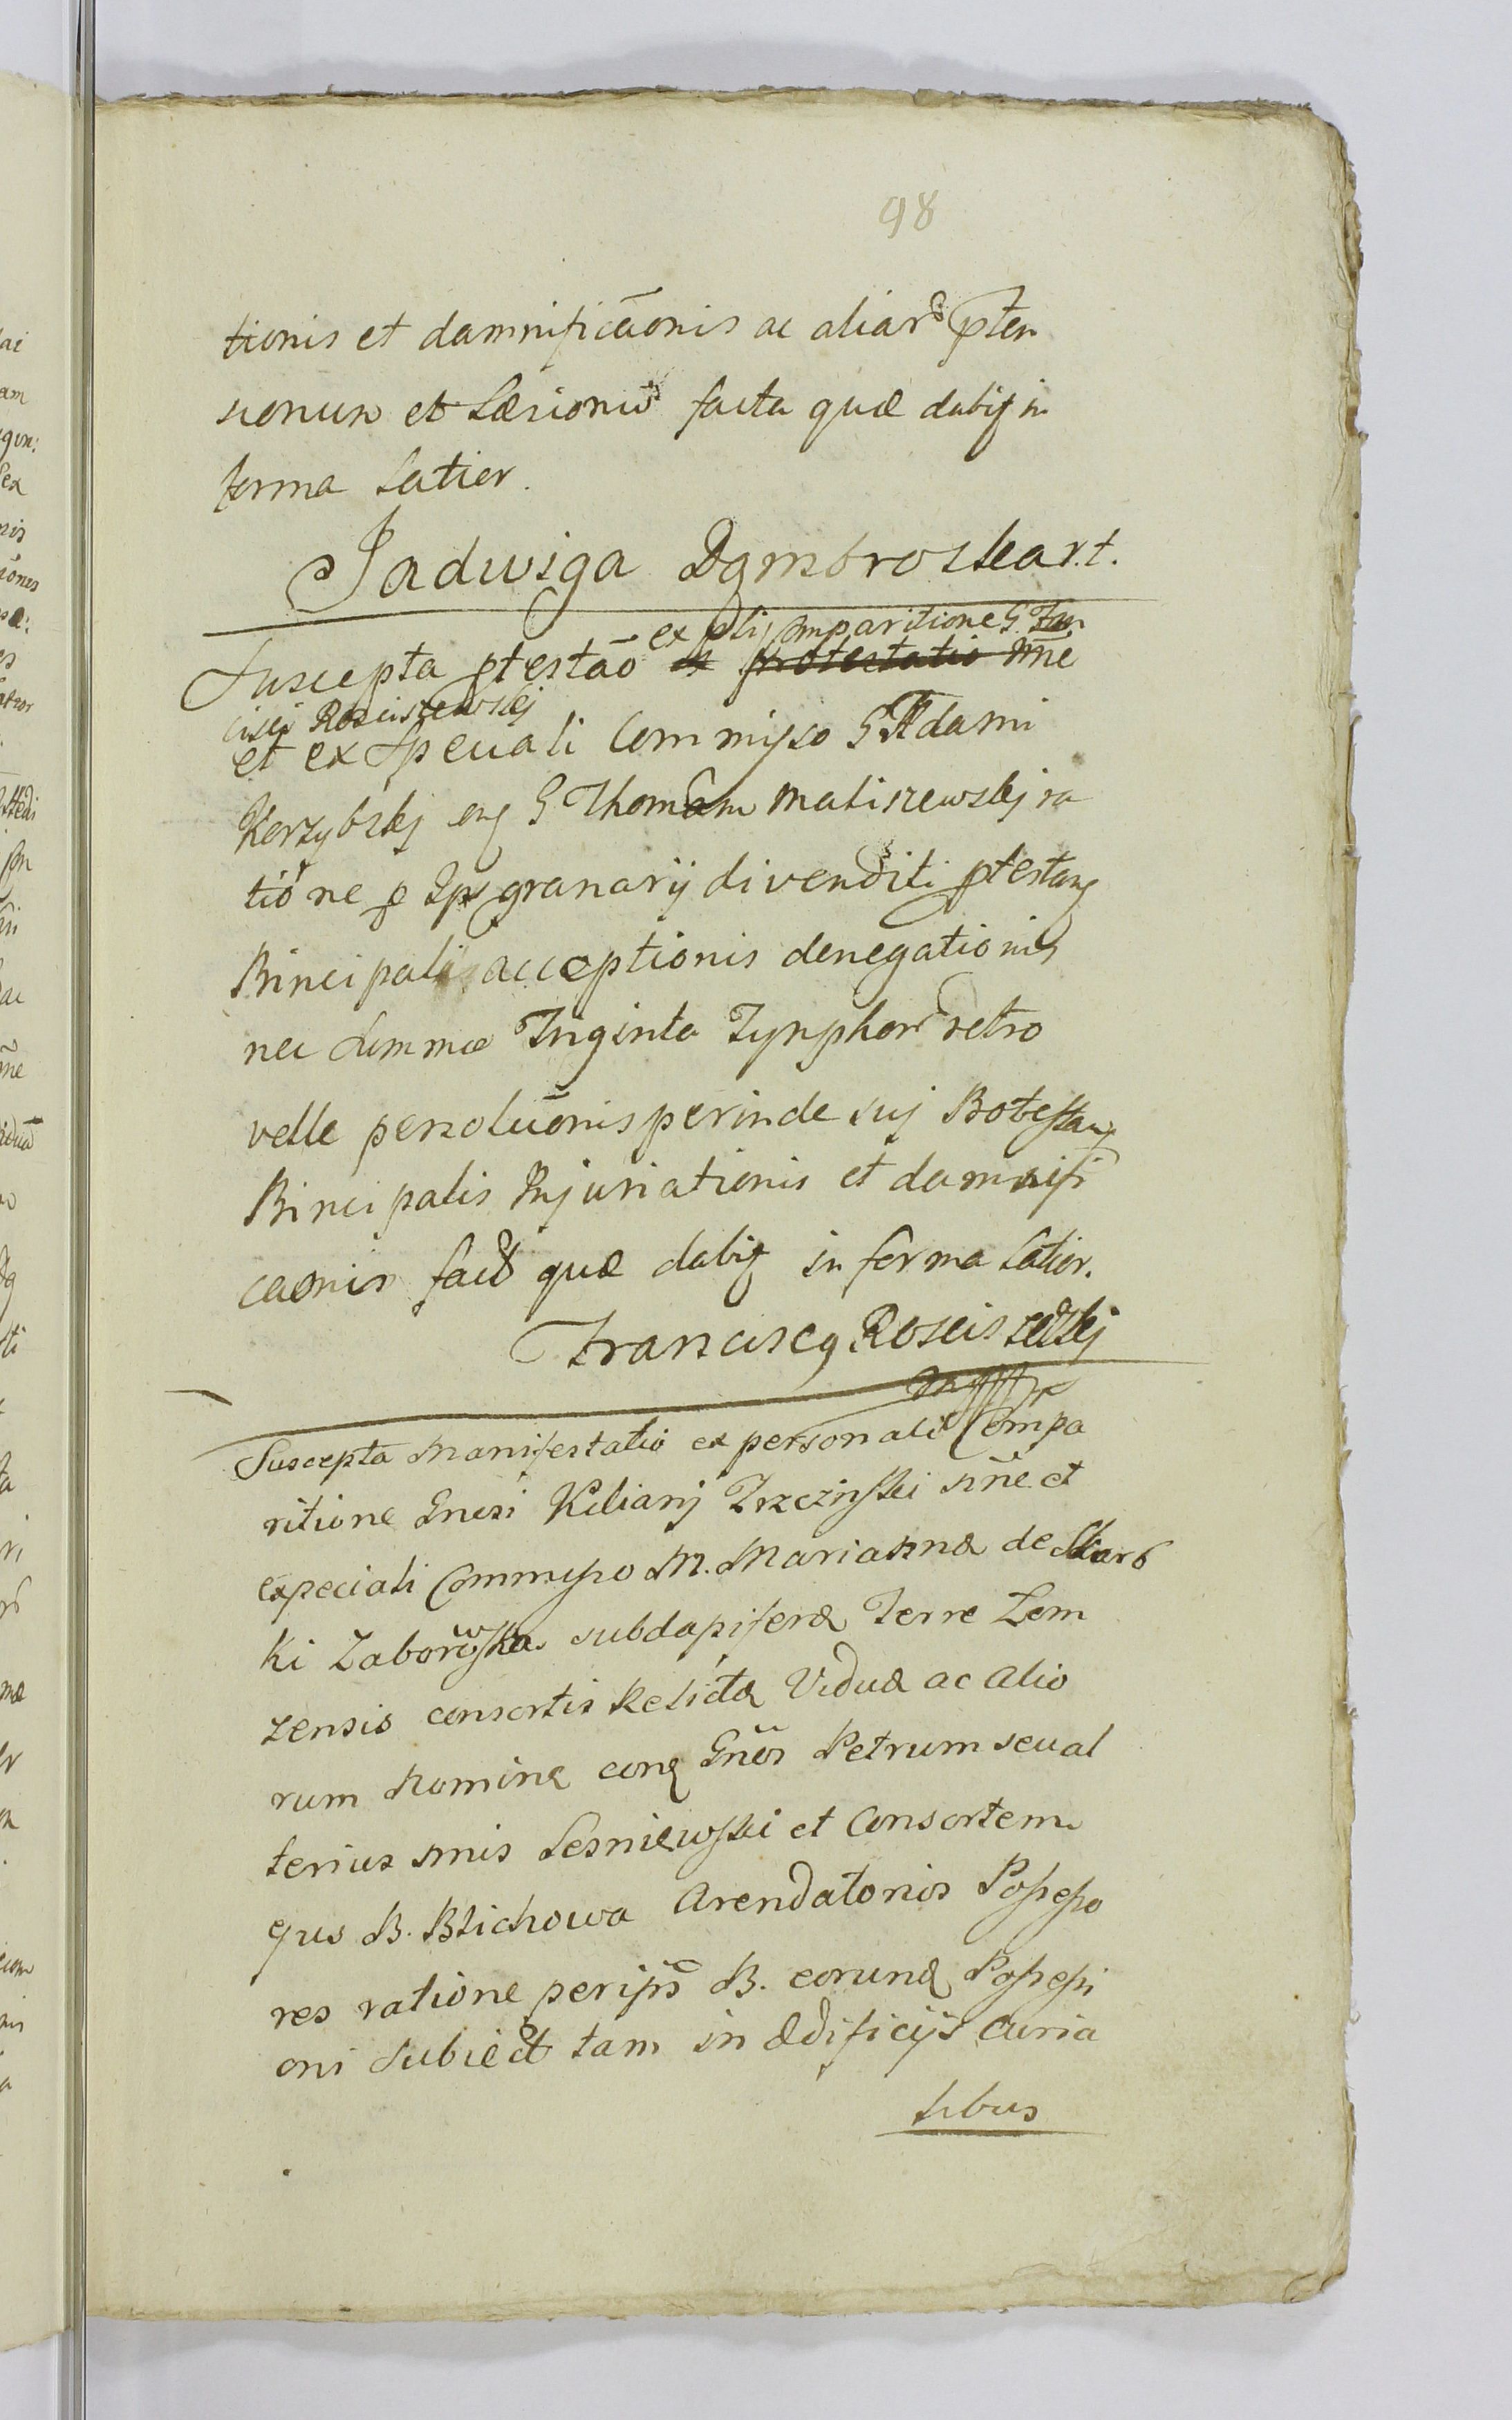 98
tionis et damnificãonis ac aliar pten
sionum et Læsionũ facta quæ dabit in
forma Latior.
Jadwiga Dąmbroska r.t.
ex psli Comparitione G. Fran
Suscepta ptestaõ ex protestatio nñe
cisci Rosciszewskj
et ex Speciali Commisso G. Adami
Korzybskj cnt G Thomam Maliszewskj ra
tione p Ips granarij divenditi ptestang
Principalis acceptionis denegationis
nec Summæ Triginta Tynphor retro
velle persoluõnis perinde suj Protestang
Principalis Injuriationis et damnifi
caonis fact quæ dabit in forma Latior.
Franciscq Rosciszewskj
mpp
Suscepta Manifestatio ex personali Compa
ritione Gnosi Kilianj Trzcinski nñe et
expeciali Commisso M. Mariannæ de Skarb
ki Zaborowska subdapiferæ Terre Lom
zensis consortis Relictæ Viduæ ac alio
rum Nomine conq Gnõs Petrum seu al
terius nmis Lesniewski et Consortem
ejus B. Blichowa Arendatorios Possesso
res ratione per ipsõ B. eorunq Possessi
oni Subiect tam in ædificijs curia
libus